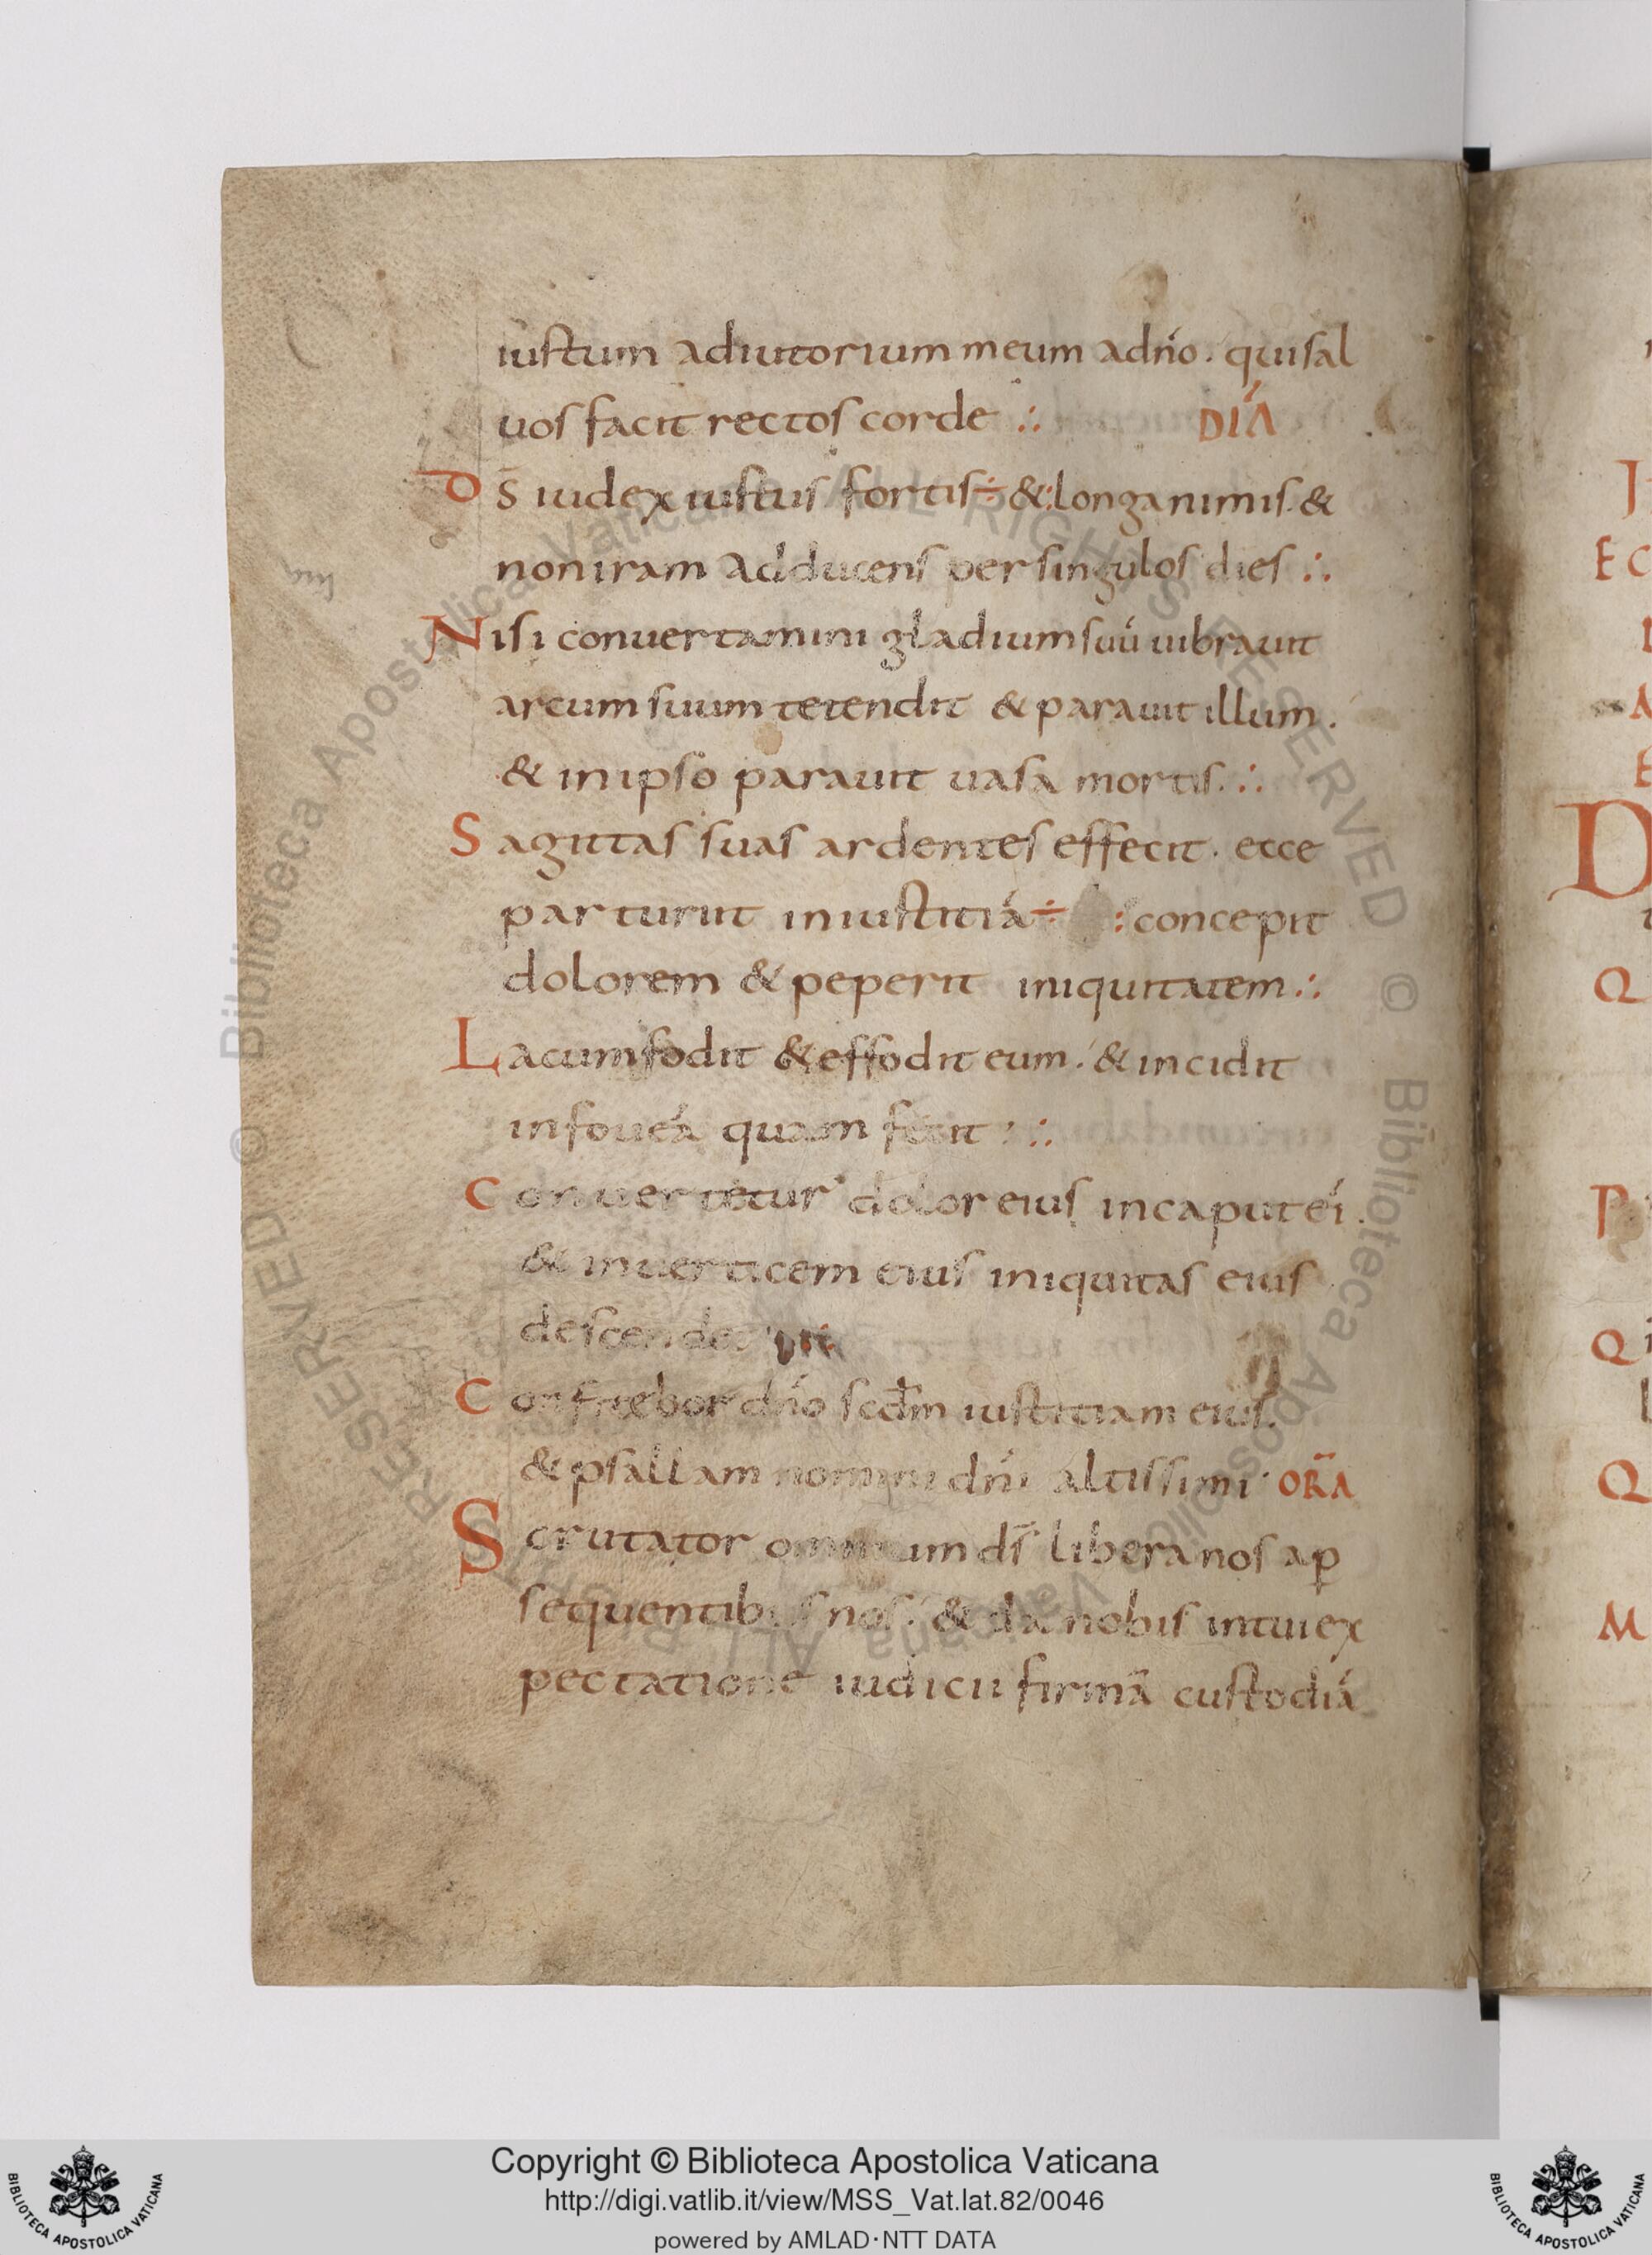 iustum adiutorium meum adño. quisal
uos facit rectos corde ∴ DIÁ
DS̄ iudex iustus fortis÷&:longanimis.&
noniram adducens persingulos dies ∴
Nisi conuertamini gladiumsuū uibrauit
arcumsuum tetendit & parauit illum.
& inipso parauit uasa mortis. ∴
Sagittas suas ardentes effecit. ecce
parturiit iniustitiā÷ :concepit
dolorem & peperit iniquitatem ∴
Lacumfodit &effodit eum.' &incidit
infoueā quam fecit : ∴
Conuertetur dolor eius incaputei.
& inuerticem eius iniquitas eius
descendet
Confitebor dño secdm iustitiam eius.
& psallam nomini dñi altissimi. OR̄A
Scrutator omnium ds̄ liberanos ap̱
sequentibus nos.' & da nobis intuiex
pectatione iudicii firmā custodiā
Copyright © Biblioteca Apostolica Vaticana
http://digi.vatlib.it/view/MSS_Vat.lat.82/0046
powered by AMLAD·NTT DATA
BIBLIOTECA APOSTOLICA VATICANA
BIBLIOTECA APOSTOLICA VATICANA
© Biblioteca Apostolica Vaticana ALL RIGHTS RESERVED
© Biblioteca Apostolica Vaticana ALL RIGHTS RESERVED